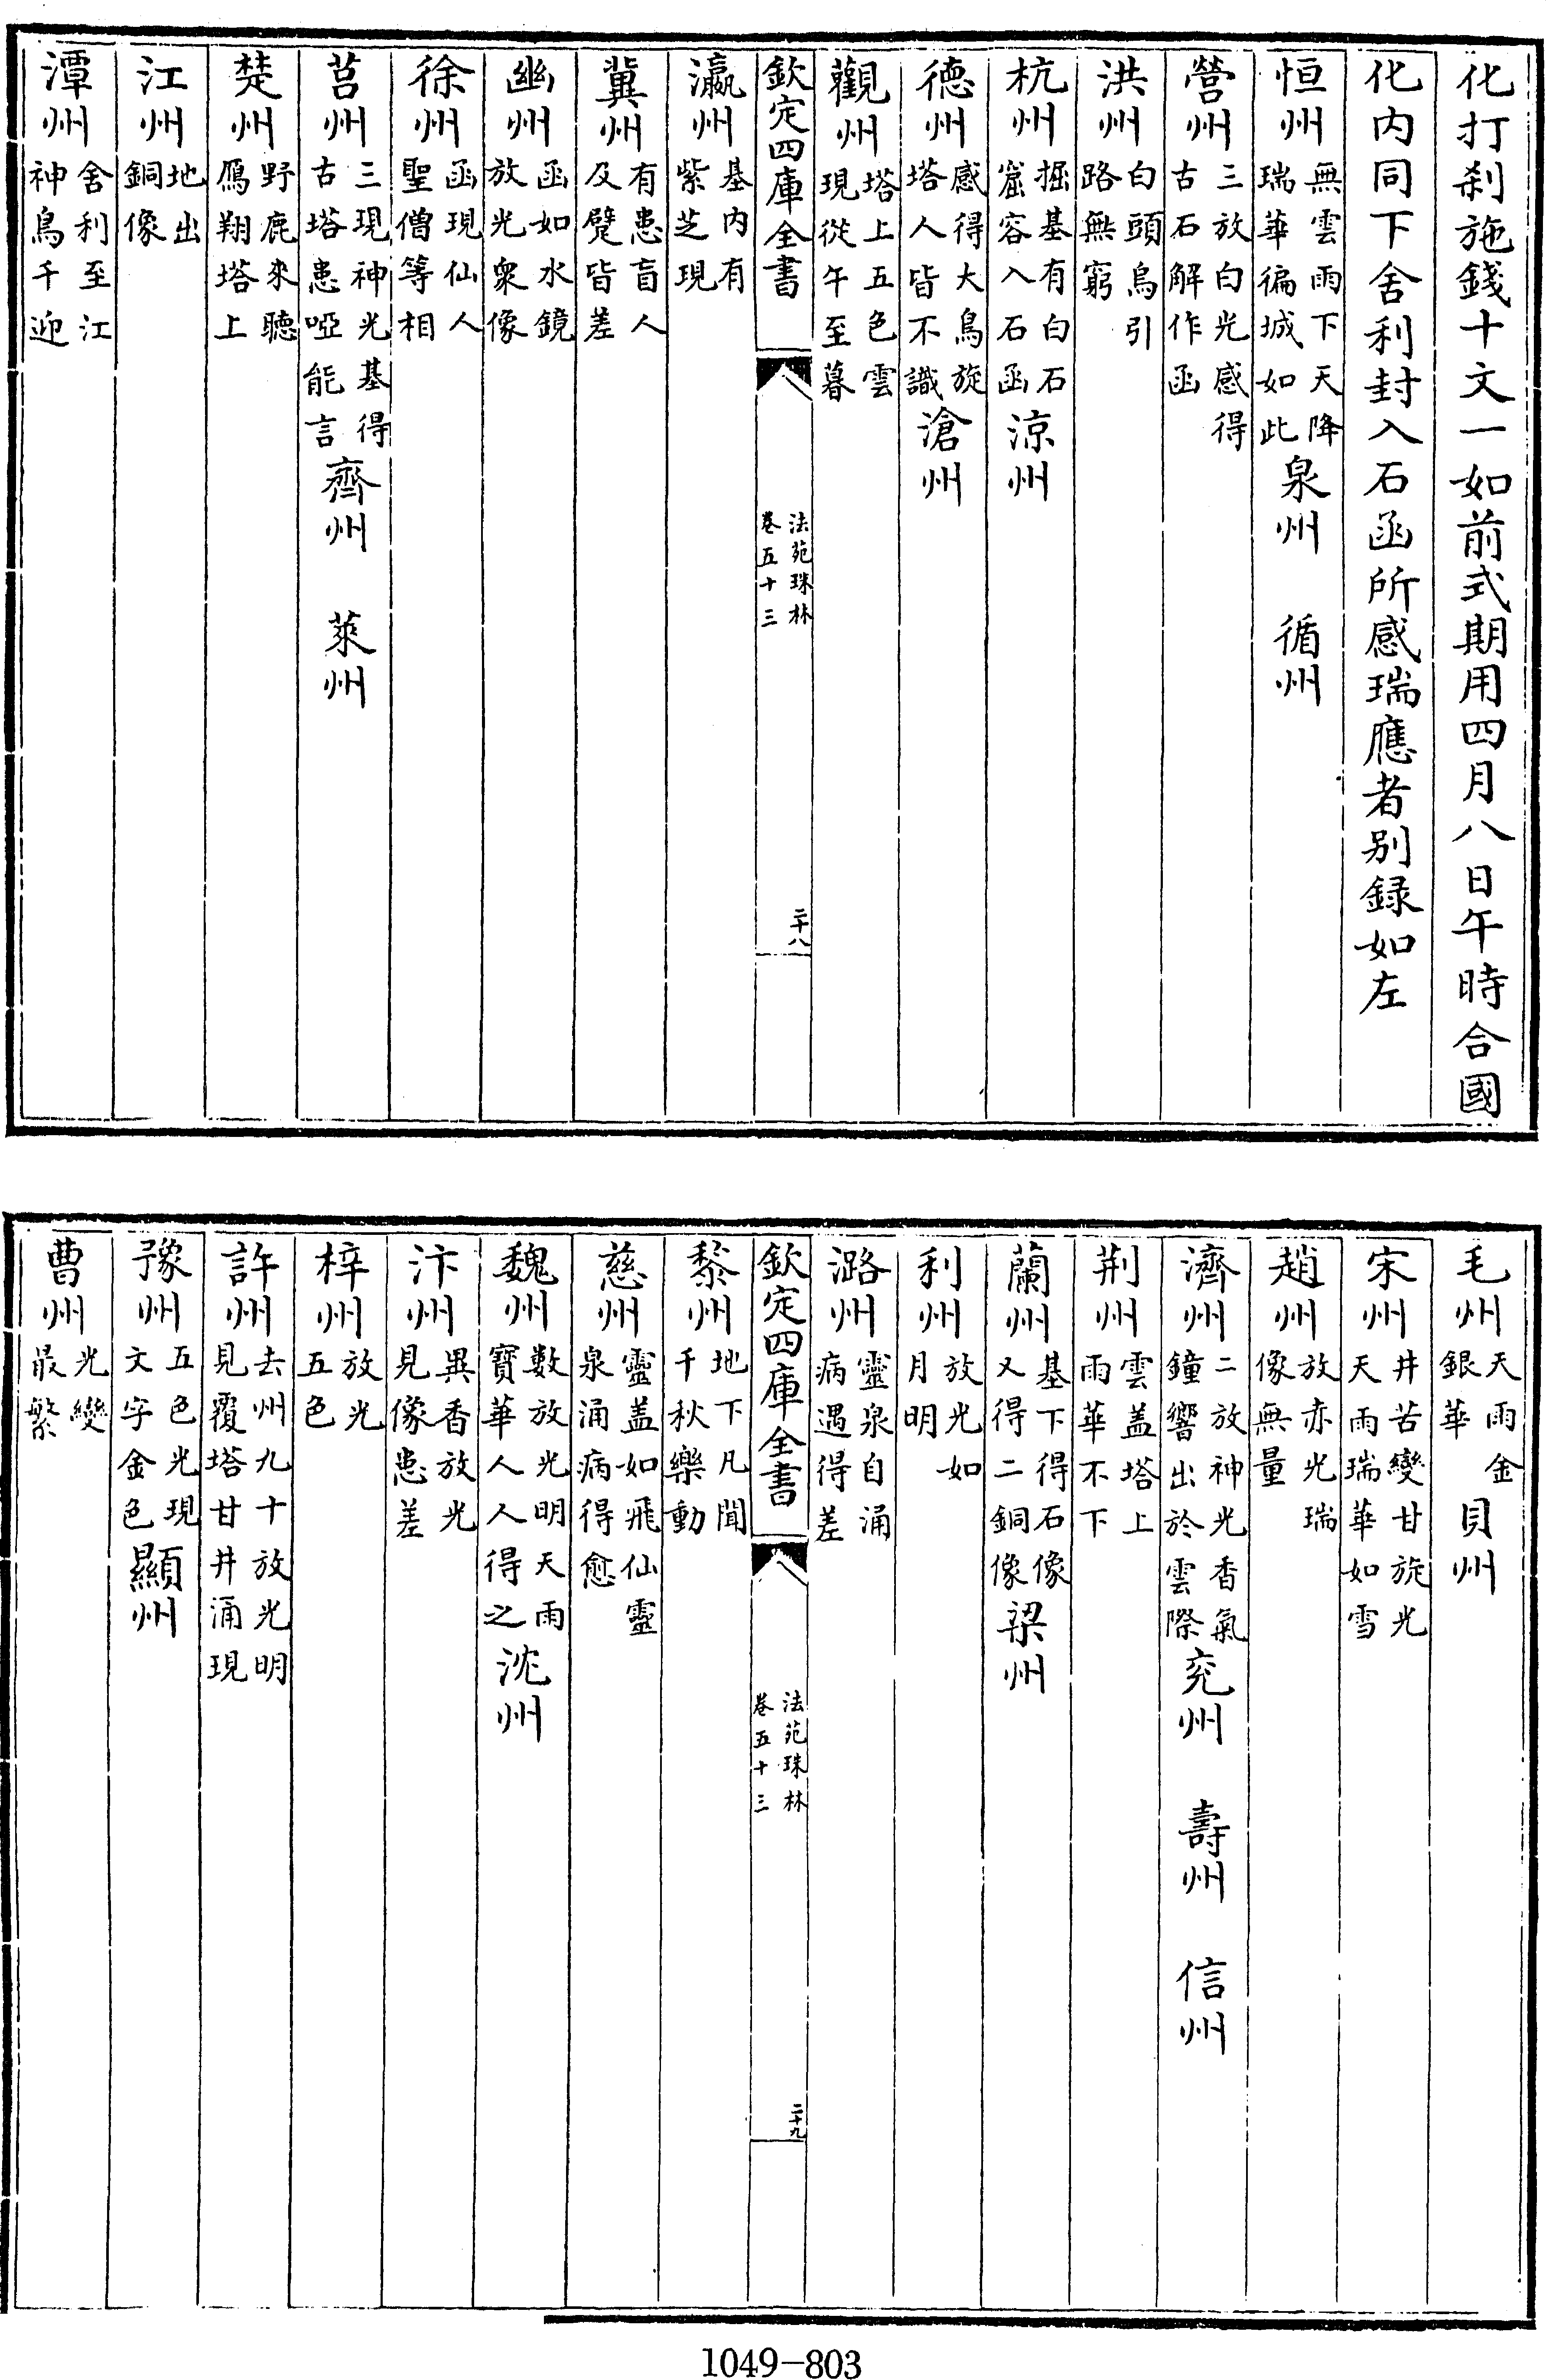 化打刹施錢十文一如前式期用四月八日午時合國
化内同下舍利封入石函所感瑞應者别録如左
恒州無雲雨下天降瑞華徧城如此泉州　循州
營州三放白光感得古石解作函
洪州白頭烏引路無窮
杭州掘基有白石窟容入石函涼州
德州感得大鳥旋塔人皆不識滄州
觀州塔上五色雲現從午至暮
欽定四庫全書
法苑珠林
卷五十三
二十八
瀛州基内有紫芝現
冀州有患盲人及躄皆差
幽州函如水鏡放光衆像
徐州函現仙人聖僧等相
莒州三現神光基得古塔患啞能言齊州　萊州
楚州野鹿來聽鴈翔塔上
江州地出銅像
潭州舍利至江神鳥千迎
毛州天雨金銀華貝州
宋州井苦變甘旋光天雨瑞華如雪
趙州放赤光瑞像無量
濟州二放神光香氣鐘響出於雲際兖州　壽州　信州
荆州雲盖塔上雨華不下
蘭州基下得石像又得二銅像梁州
利州放光如月明
潞州靈泉自涌病遇得差
欽定四庫全書
法苑珠林
卷五十三
二十九
黎州地下凡聞千秋樂動
慈州靈盖如飛仙靈泉涌病得愈
魏州數放光明天雨寶華人人得之沈州
汴州異香放光見像患差
梓州放光五色
許州去州九十放光明見覆塔甘井涌現
豫州五色光現文字金色顯州
曹州光變最繁
1049-803